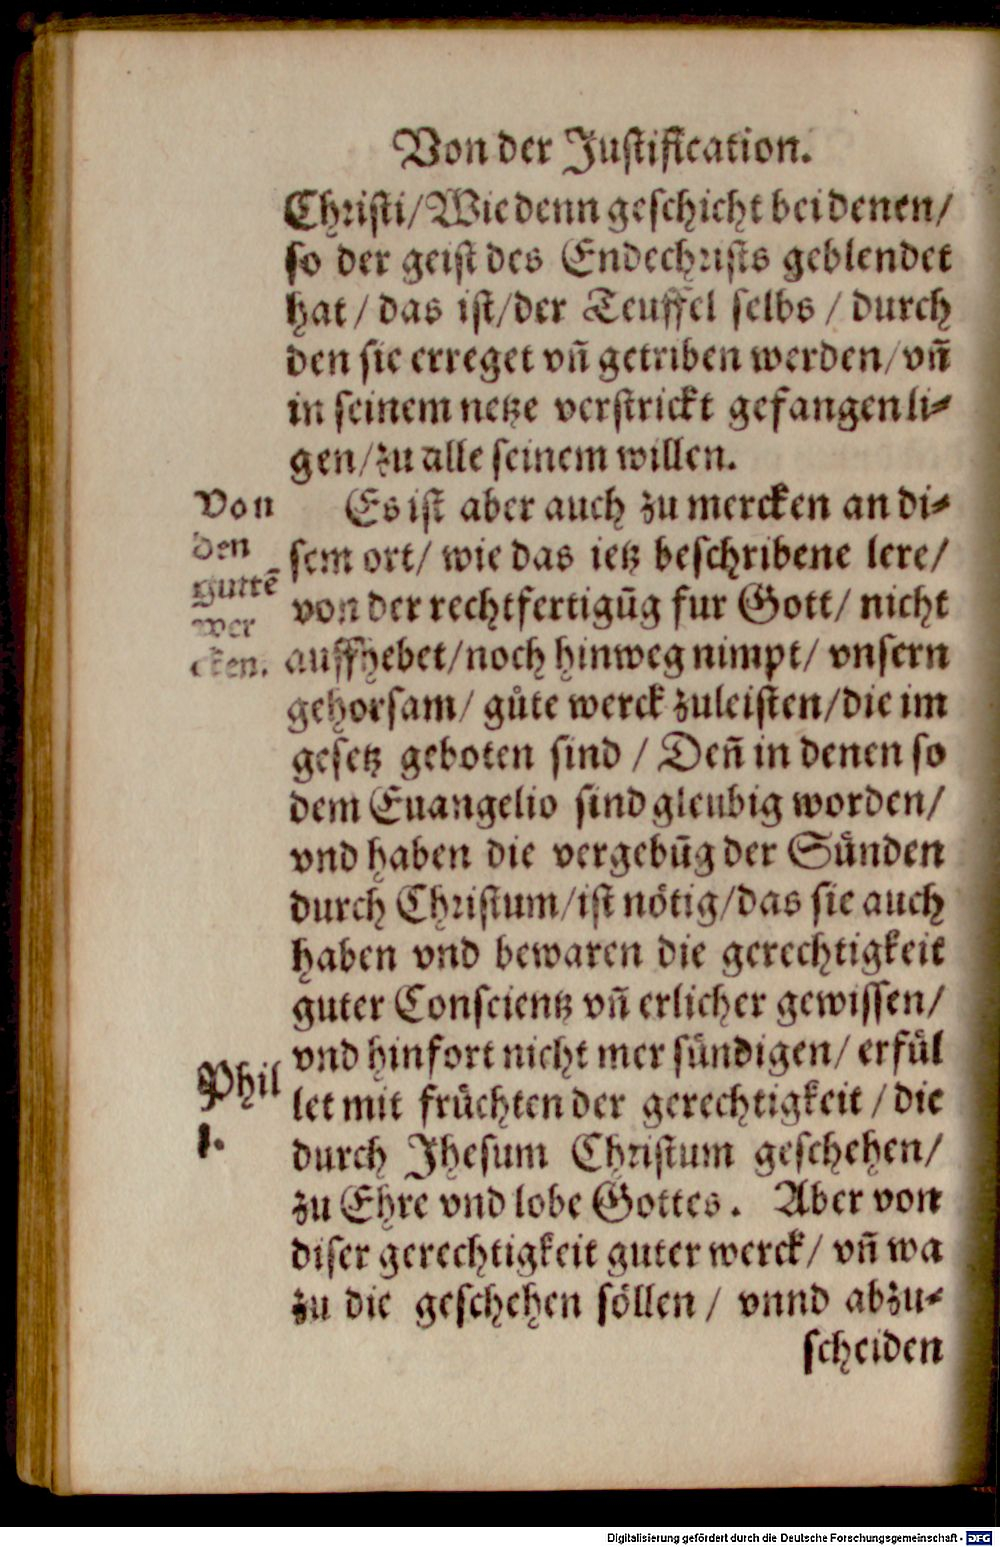 Von der Justification.
Christi/Wie denn geschicht bei denen/
so der geist des Endechrists geblendet
hat/das ist/der Teuffel selbs/durch
den sie erreget vñ getriben werden/vñ
in seinem netze verstrickt gefangen li⸗
gen/zu alle seinem willen.
Von
den
guttē
wer
cken.
Es ist aber auch zu mercken an di⸗
sem ort/ wie das ietz beschribene lere/
von der rechtfertigūg fur Gott/ nicht
auffhebet/noch hinweg nimpt/ vnsern
gehorsam/ gůte werck zuleisten/die im
gesetz geboten sind / Deñ in denen so
dem Euangelio sind gleubig worden/
vnd haben die vergebūg der Sünden
durch Christum/ist nötig/das sie auch
haben vnd bewaren die gerechtigkeit
guter Conscientz vñ erlicher gewissen/
vnd hinfort nicht mer sündigen/ erfül
Phil
1.
let mit früchten der gerechtigkeit / die
durch Jhesum Christum geschehen/
zu Ehre vnd lobe Gottes. Aber von
diser gerechtigkeit guter werck/ vñ wa
zu die geschehen söllen / vnnd abzu⸗
scheiden
Digitalisierung gefördert durch die Deutsche Forschungsgemeinschaft - DFG